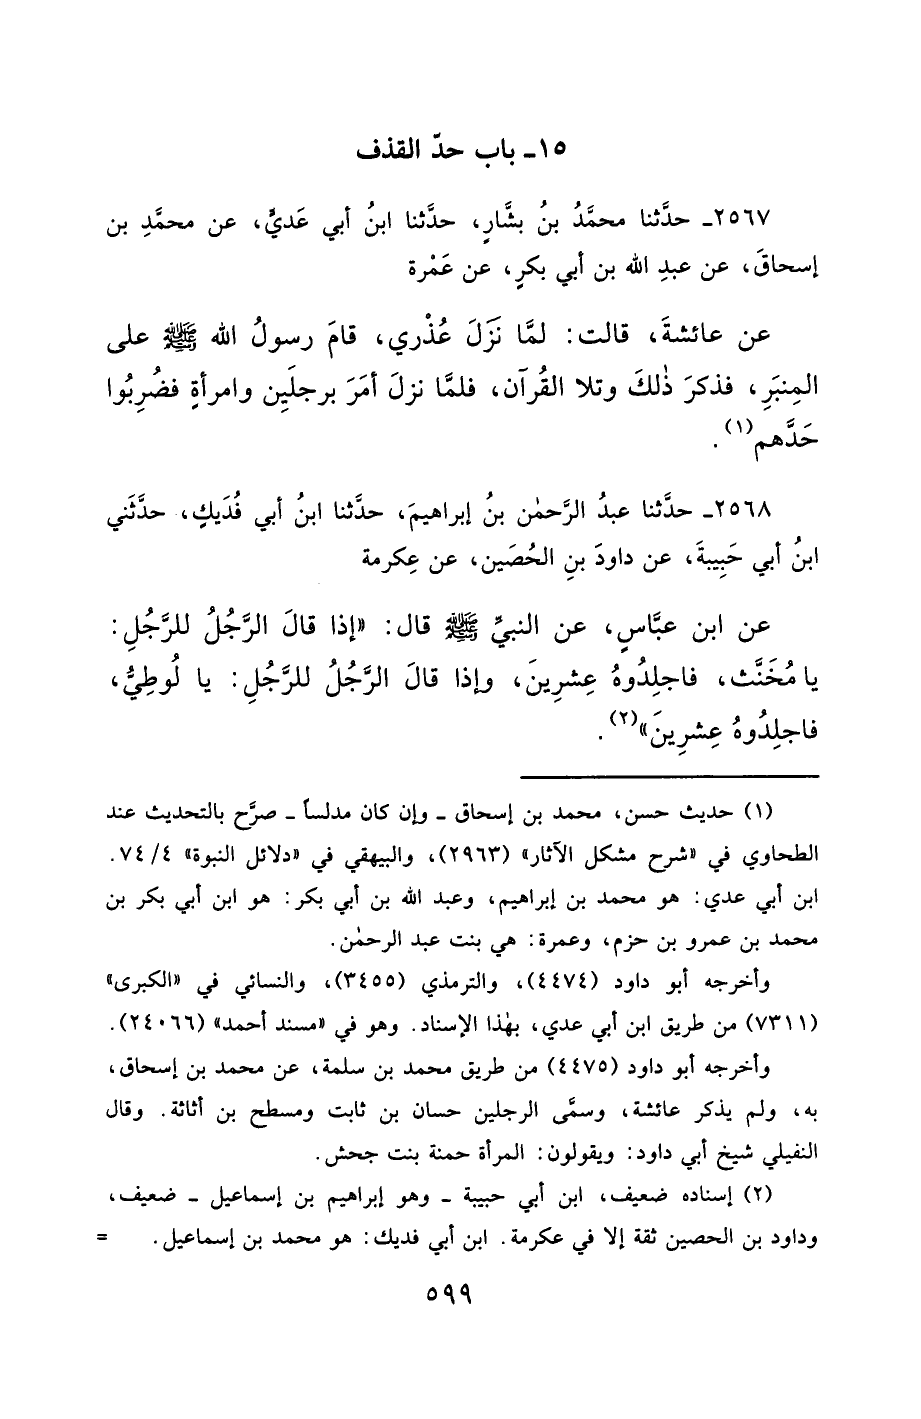 ١٥ـ باب حدّ القذف
٢٥٦٧ـ حدَّثنا محمَّدُ بنُ بشَّارٍ، حدَّثنا ابنُ أبي عَديٍّ، عن محمَّدِ بن
إسحاقَ، عن عبدِ الله بن أبي بكرٍ، عن عَمْرة
عن عائشةَ، قالت: لمَّا نَزَلَ عُذْري، قامَ رسولُ الله ﷺ على
المِنبَرِ، فذكرَ ذٰلكَ وتلا القُرآن، فلمَّا نزلَ أمَرَ برجلَينِ وامرأةٍ فضُرِبُوا
حَدَّهم(١).
٢٥٦٨ـ حدَّثنا عبدُ الرَّحمٰن بنُ إبراهيمَ، حدَّثنا ابنُ أبي فُدَيكٍ، حدَّثَني
ابنُ أبي حَبِيبةَ، عن داودَ بنِ الحُصَين، عن عِكرمة
عن ابن عبَّاسٍ، عن النبيِّ ﷺ قال: «إذا قالَ الرَّجُلُ للرَّجُلِ:
يا مُخَنَّث، فاجلِدُوهُ عِشرِينَ، وإذا قالَ الرَّجُلُ للرَّجُلِ: يا لُوطِيُّ،
فاجلِدُوهُ عِشرِينَ»(٢).
(١) حديث حسن، محمد بن إسحاق ـ وإن كان مدلساً ـ صرَّح بالتحديث عند
الطحاوي في «شرح مشكل الآثار» (٢٩٦٣)، والبيهقي في «دلائل النبوة» ٧٤/٤.
ابن أبي عدي: هو محمد بن إبراهيم، وعبد الله بن أبي بكر: هو ابن أبي بكر بن
محمد بن عمرو بن حزم، وعمرة: هي بنت عبد الرحمٰن.
وأخرجه أبو داود (٤٤٧٤)، والترمذي (٣٤٥٥)، والنسائي في «الكبرى»
(٧٣١١) من طريق ابن أبي عدي، بهٰذا الإسناد. وهو في «مسند أحمد» (٢٤٠٦٦).
وأخرجه أبو داود (٤٤٧٥) من طريق محمد بن سلمة، عن محمد بن إسحاق،
به، ولم يذكر عائشة، وسمَّى الرجلين حسان بن ثابت ومسطح بن أثاثة. وقال
النفيلي شيخ أبي داود: ويقولون: المرأة حمنة بنت جحش.
(٢) إسناده ضعيف، ابن أبي حبيبة ـ وهو إبراهيم بن إسماعيل ـ ضعيف،
وداود بن الحصين ثقة إلا في عكرمة. ابن أبي فديك: هو محمد بن إسماعيل. =
٥٩٩